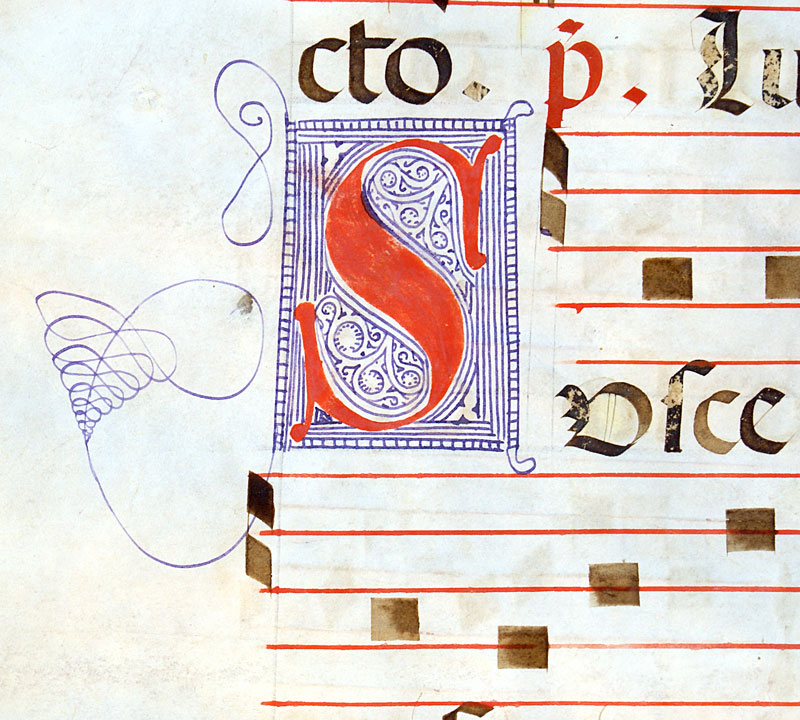 cto. p̄. Iu
SVſce